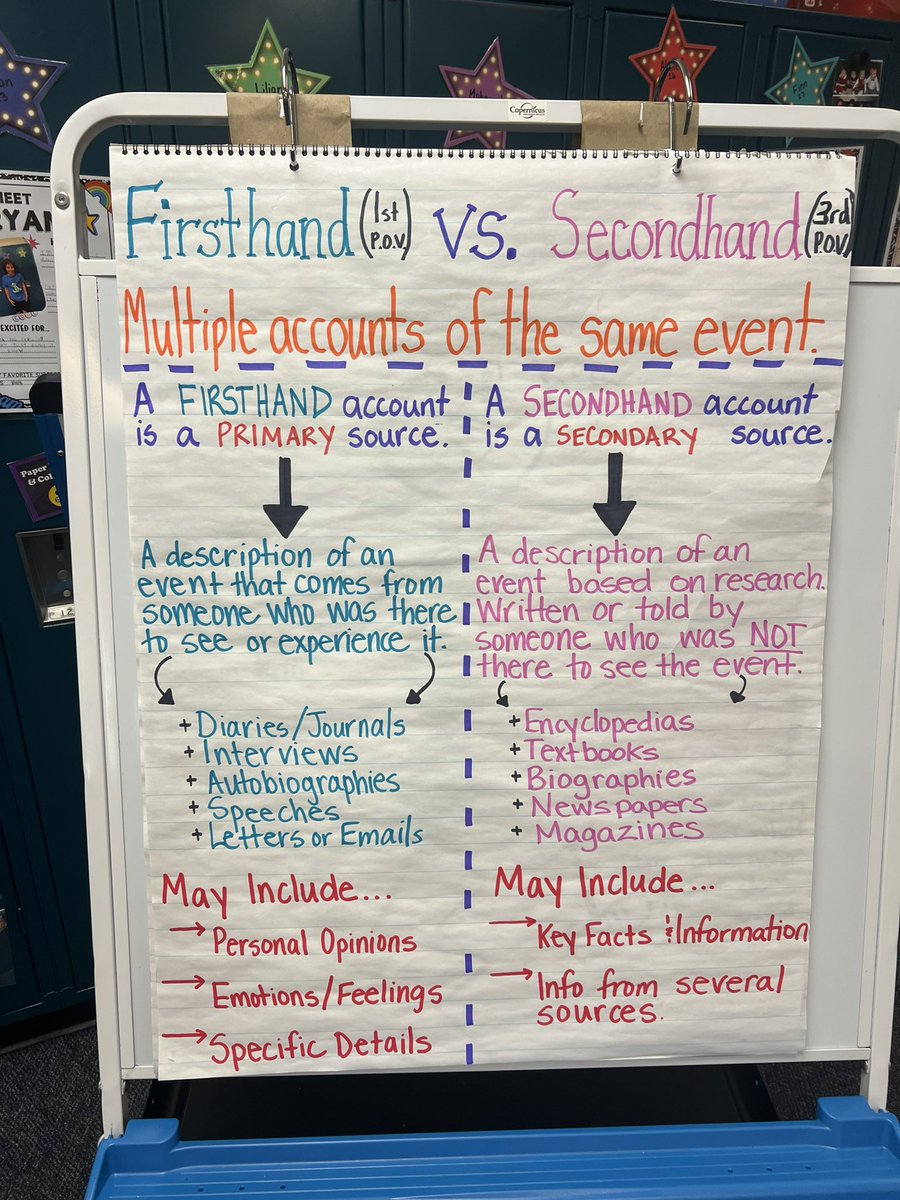 Copernicus
Firsthand (1st P.O.V.) VS. Secondhand (3rd P.O.V.)
Multiple accounts of the same event.
A FIRSTHAND account
is a PRIMARY source.
A description of an
event that comes from
someone who was there
to see or experience it.
+ Diaries/Journals
+ Interviews
+ Autobiographies
+ Speeches
+ Letters or Emails
May Include...
→ Personal Opinions
→ Emotions/Feelings
→ Specific Details
A SECONDHAND account
is a SECONDARY source.
A description of an
event based on research.
Written or told by
someone who was NOT
there to see the event.
+ Encyclopedias
+ Textbooks
+ Biographies
+ Newspapers
+ Magazines
May Include...
→ Key Facts & Information
→ Info from several
sources.
MEET
RYAN
EXCITED FOR...
FAVORITE
Paper
& Col
12
Finn